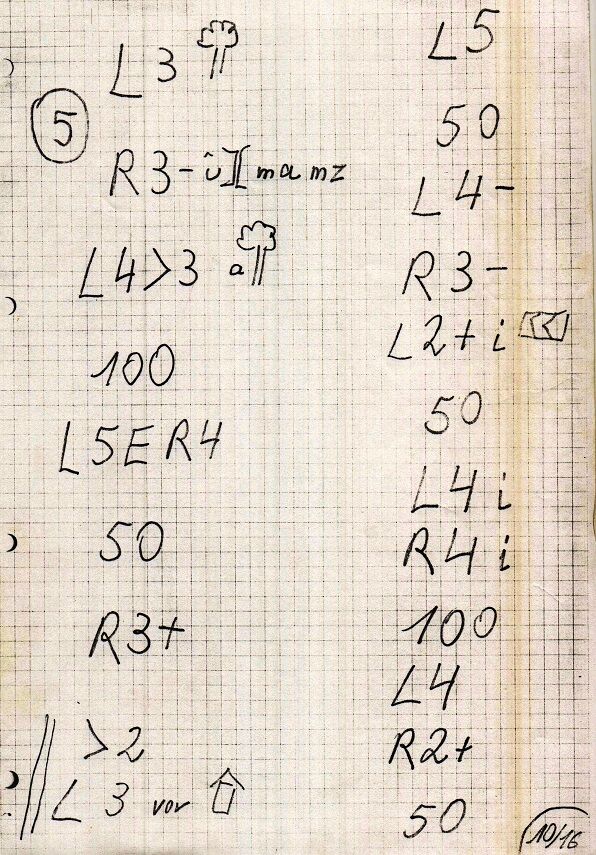 5
L3
R3- û ][ ma mz
L4>3 a
100
L5 E R4
50
R3+
>2
L 3 vor
L5
50
L4-
R3-
L2+ i <<
50
L4 i
R4 i
100
L4
R2+
50
10/16